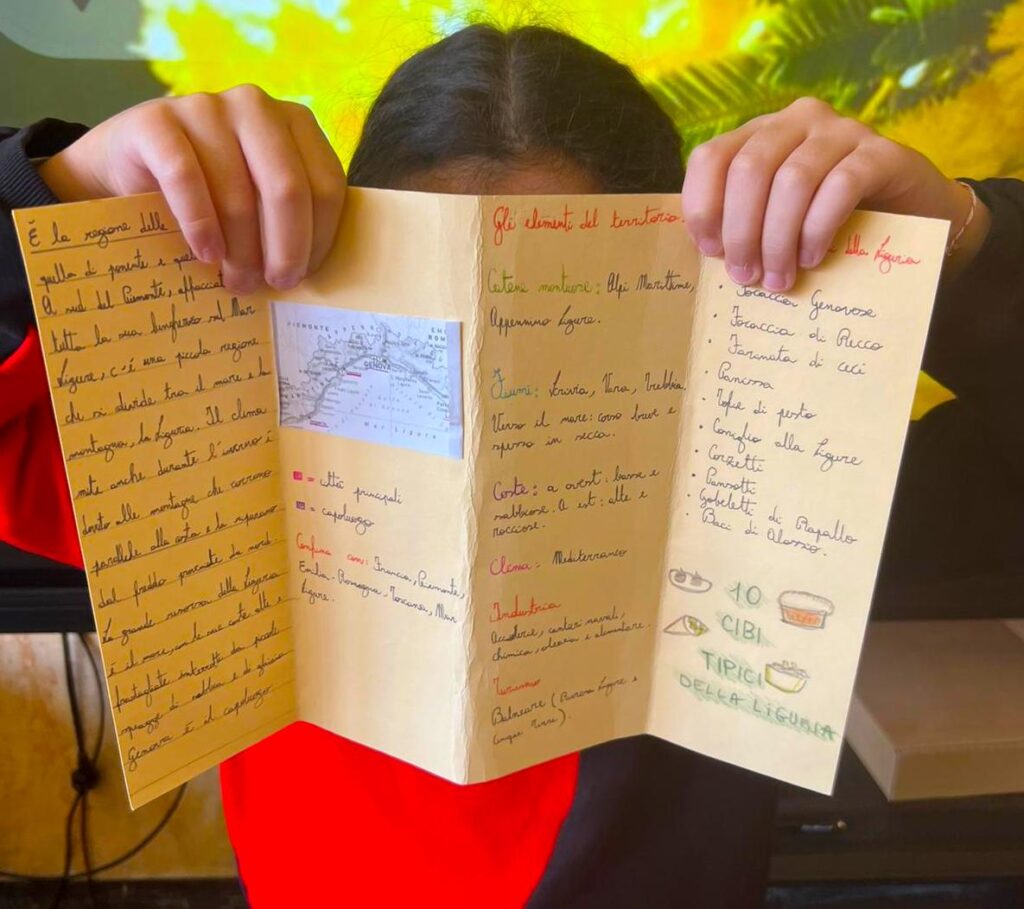 È la regione delle
quella di ponente e
A sud del Piemonte,
tutta la sua lunghezza sul Mar
Ligure, c'è una piccola regione
chi si divide tra il mare e la
montagna, la Liguria. Il clima
mite anche durante l'inverno è
dovuto alle montagne che corrono
parallele alla costa e la riparano
dal freddo proveniente da nord.
La grande risorsa della Liguria
è il mare, con le sue coste alte e
frastagliate interrotte da piccole
spiagge di sabbia e di ghiaia.
Genova è il capoluogo.
PIEMONTE
GENOVA
Mar Ligure
= città principali
= capoluogo
Confina con: Francia, Piemonte,
Emilia-Romagna, Toscana, Mar
Ligure.
Gli elementi del territorio.
Catene montuose: Alpi Marittime,
Appennino Ligure.
Fiumi: Scrivia, Vara, Trebbia.
Verso il mare: corso breve e
spesso in secco.
Coste: a ovest: basse e
sabbiose. A est: alte e
rocciose.
Clima: Mediterraneo
Industria
Acciaierie, cantieri navali,
chimica, olearia e alimentare.
Turismo
Balneare (Riviera Ligure e
Cinque Terre).
della Liguria
• Focaccia Genovese
• Focaccia di Recco
• Farinata di ceci
• Panissa
• Trofie di pesto
• Coniglio alla Ligure
• Corzetti
• Pansotti
• Gobeletti di Rapallo
• Baci di Alassio.
10
CIBI
TIPICI
DELLA LIGURIA